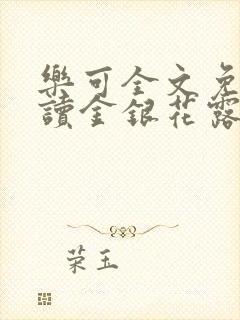 樂可全文免
讀金銀花露
荣玉